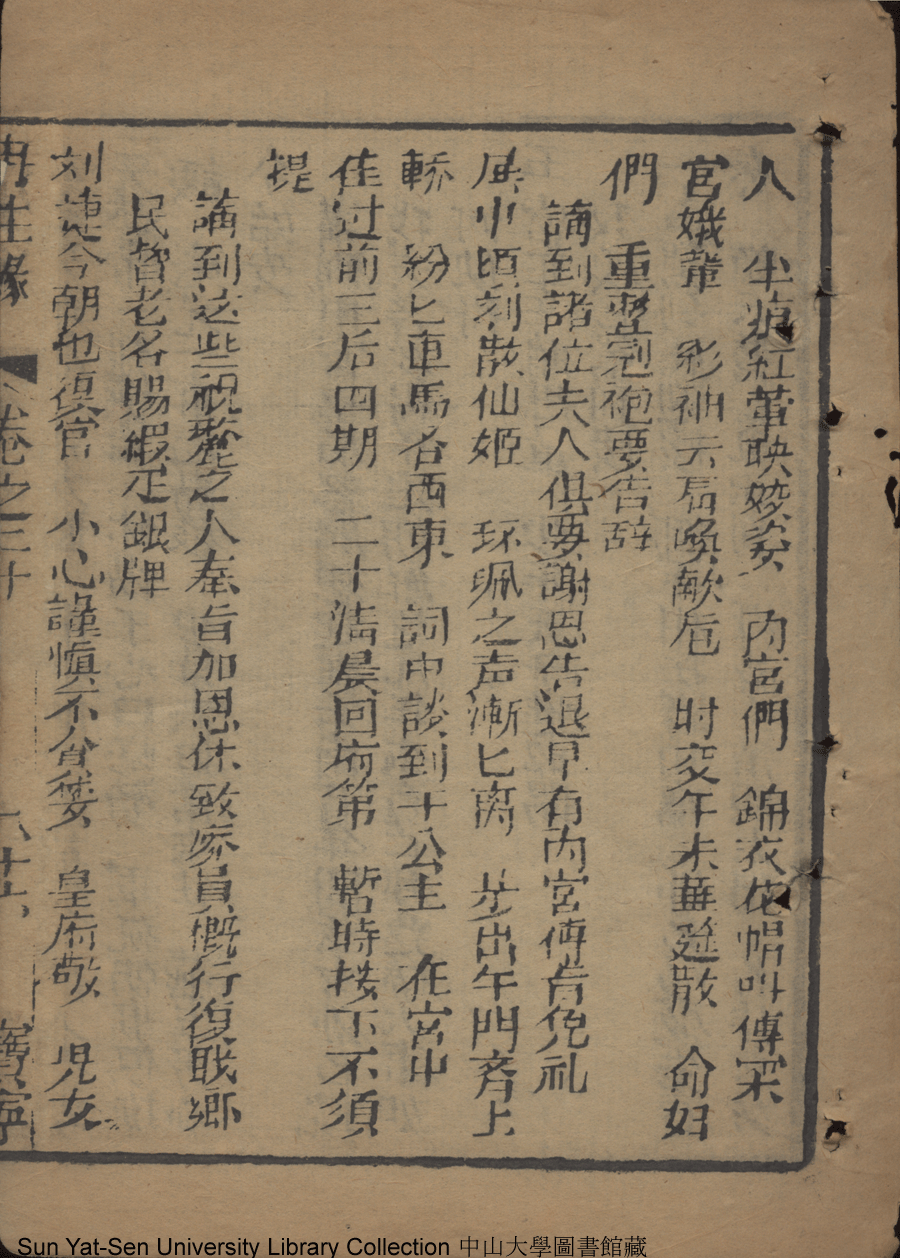 人　坐　紅　映　姿　内宮們　錦衣花帽叫傳杯
宮娥輩　彩袖云　喚献卮　时交午未華筵散　命妇
們　重整冠袍要告辞
講到諸位夫人俱要謝恩告退早有内宮傳旨免礼
　中頃刻散仙姬　环珮之声漸匕离　步出午門齊上
轎　紛匕車馬各西東　詞中談到　公主　在宮中
住过前三后四期　二十清晨回府第　暫時按下不須
提
講到这些祝　之人奉旨加恩休致　員慨行復职鄉
民耆老名賜緞疋銀牌
刘捷今朝也復官　小心謹慎不　　　皇府敬　児女
再生緣　卷之三十　六十六　寶寧
Sun Yat-Sen University Library Collection 中山大學圖書館藏